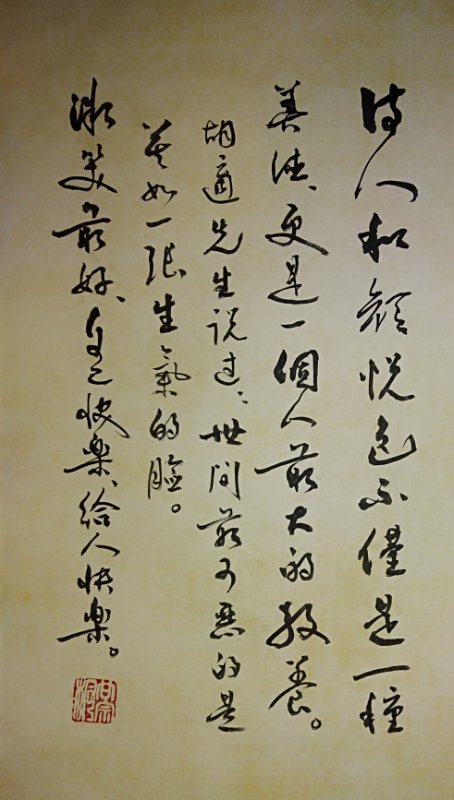 待人和颜悦色不僅是一種
美德、更是一個人最大的教養。
胡適先生说过：世间最可惡的是
莫如一張生氣的臉。
微笑最好、自己快樂、给人快樂。